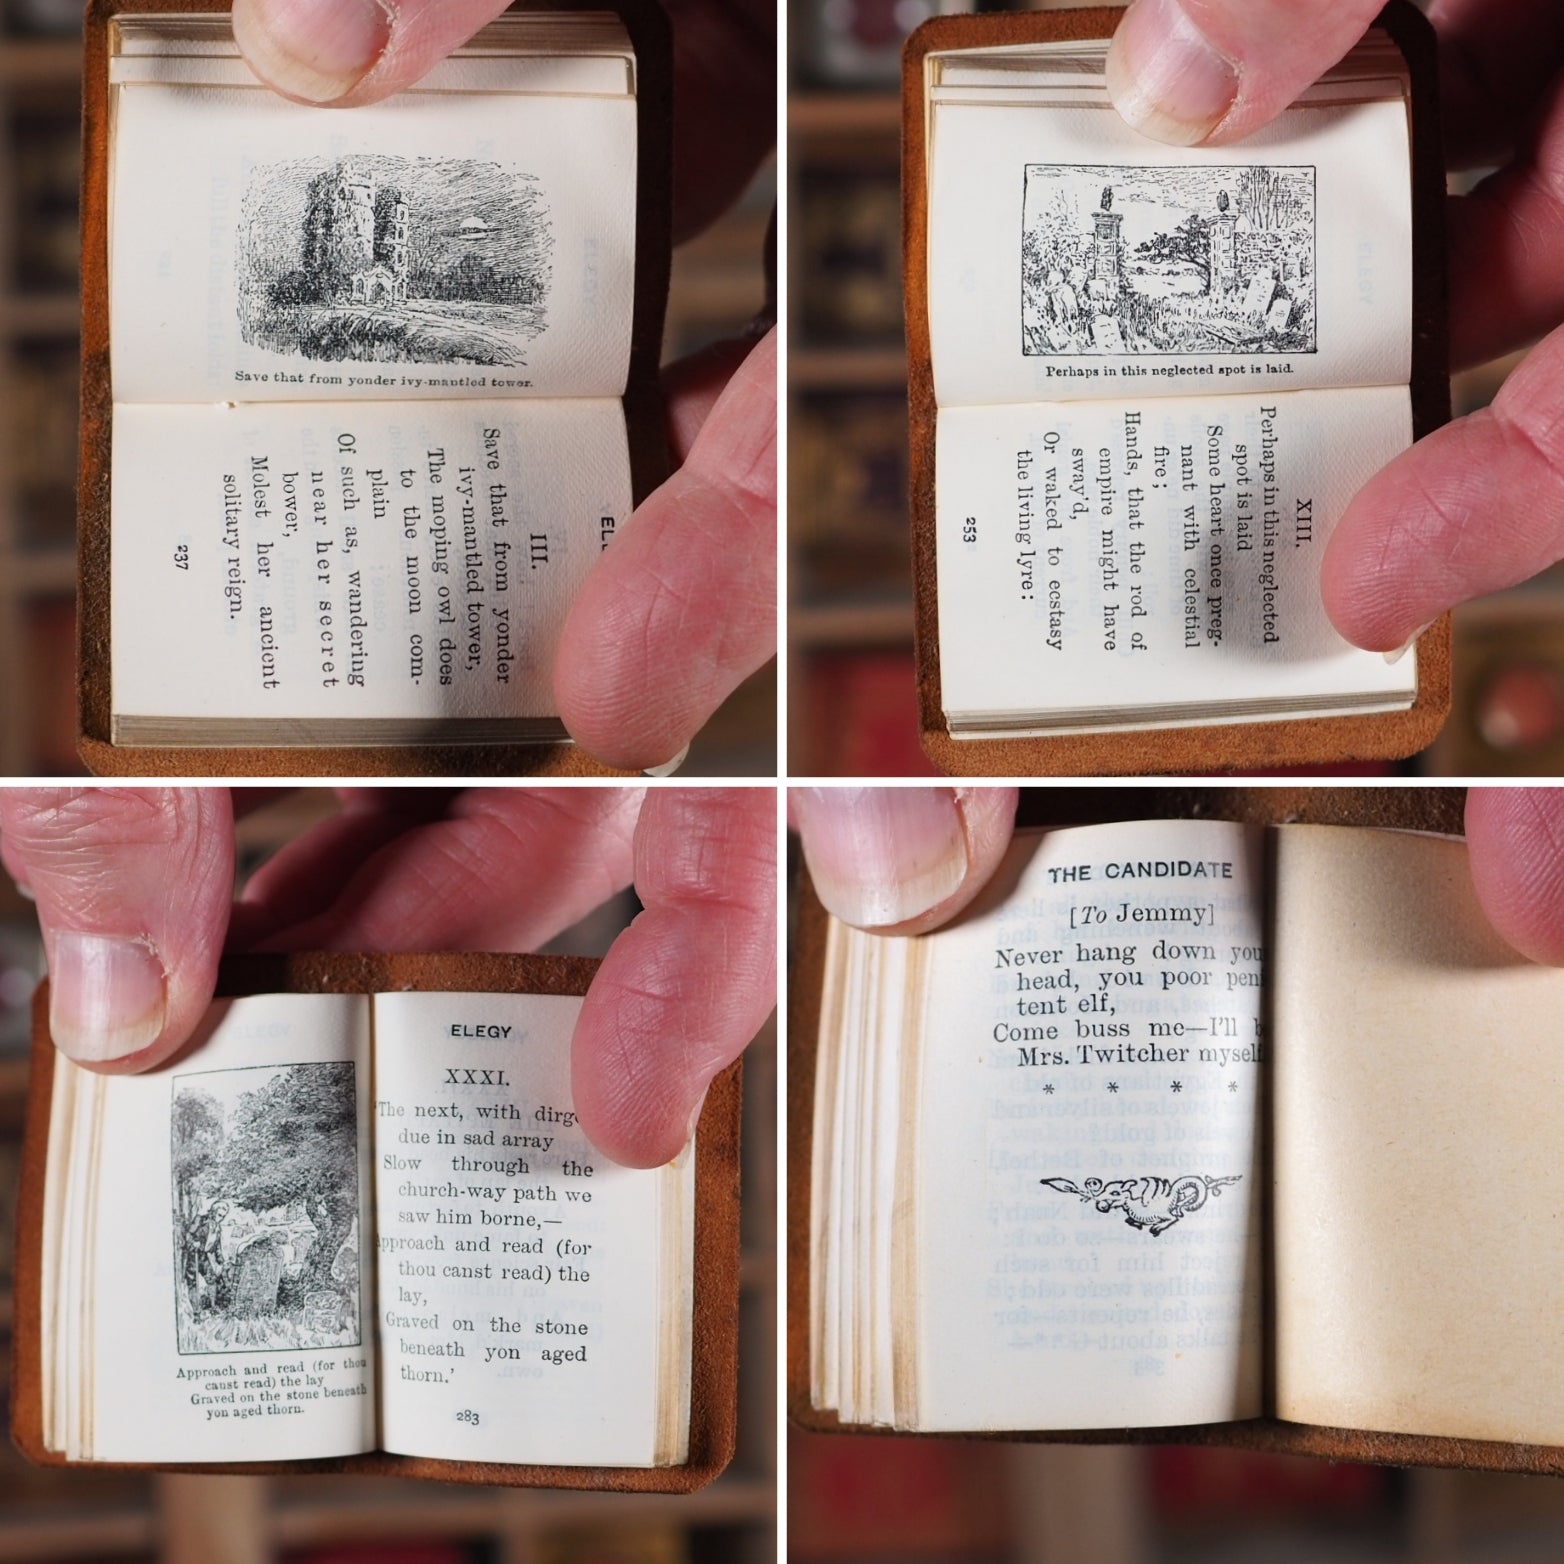 Save that from yonder ivy-mantled tower.
III.
Save that from yonder
ivy-mantled tower,
The moping owl does
to the moon com-
plain
Of such as, wandering
near her secret
bower,
Molest her ancient
solitary reign.
237
Perhaps in this neglected spot is laid.
XIII.
Perhaps in this neglected
spot is laid
Some heart once preg-
nant with celestial
fire;
Hands, that the rod of
empire might have
sway'd,
Or waked to ecstasy
the living lyre:
253
Approach and read (for thou
canst read) the lay
Graved on the stone beneath
yon aged thorn.
ELEGY
XXXI.
The next, with dirges
due in sad array
Slow through the
church-way path we
saw him borne,—
Approach and read (for
thou canst read) the
lay,
Graved on the stone
beneath yon aged
thorn.'
283
THE CANDIDATE
[To Jemmy]
Never hang down you
head, you poor peni
tent elf,
Come buss me—I'll b
Mrs. Twitcher myself
* * * *